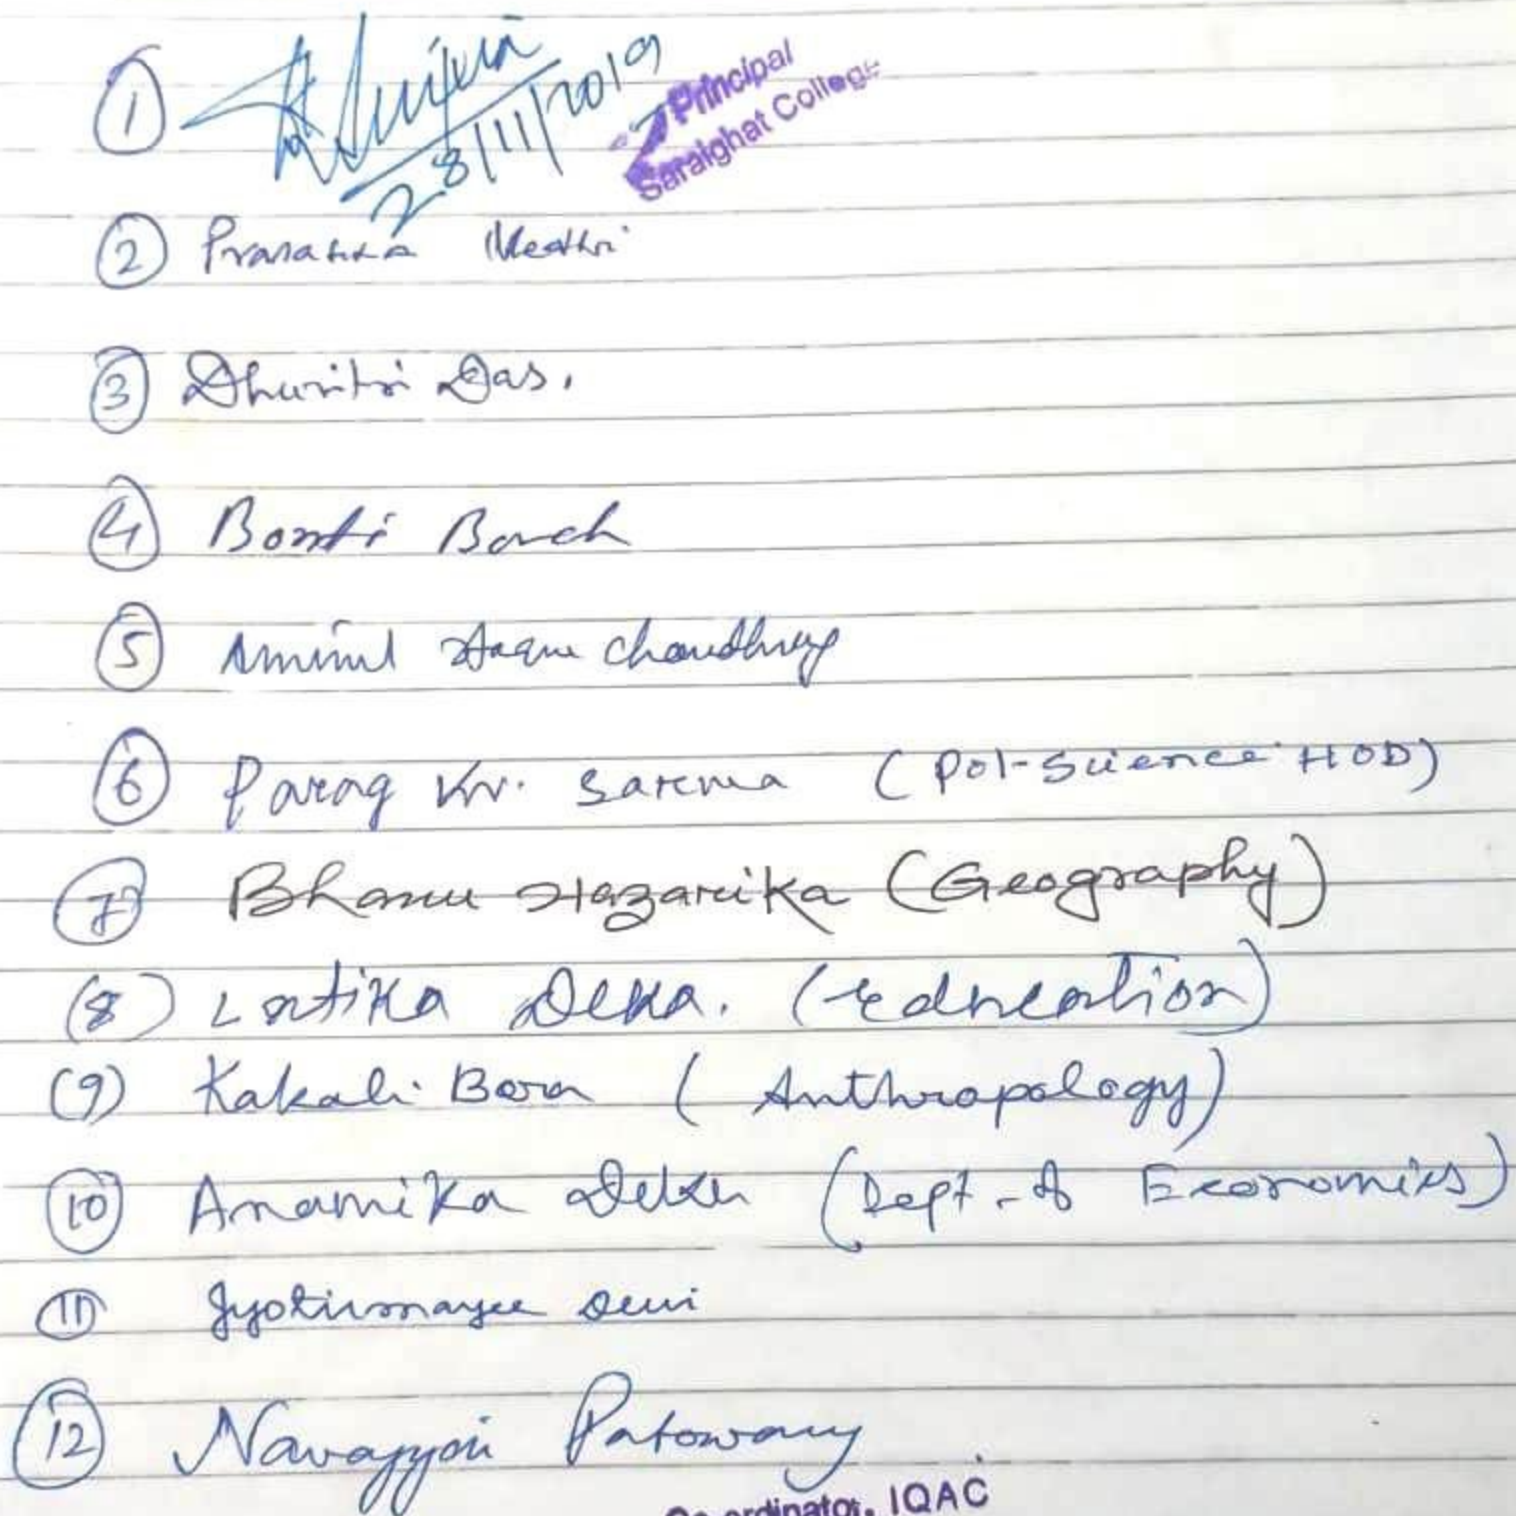 ① 28/11/2019 Principal
Saraighat College
② Prasanna Medhi
③ Dhuritri Das.
④ Bonti Borah
⑤ Aminul Haque Choudhury
⑥ Parag Kr. Sarma (Pol-Science HOD)
⑦ Bhanu Hazarika (Geography)
(8) Latika Deka. (Education)
(9) Kakali Bora (Anthropology)
⑩ Anamika Deka (Dept. of Economics)
⑪ Jyotirmayee Devi
⑫ Navajyoti Patowary
Co-ordinator, IQAC